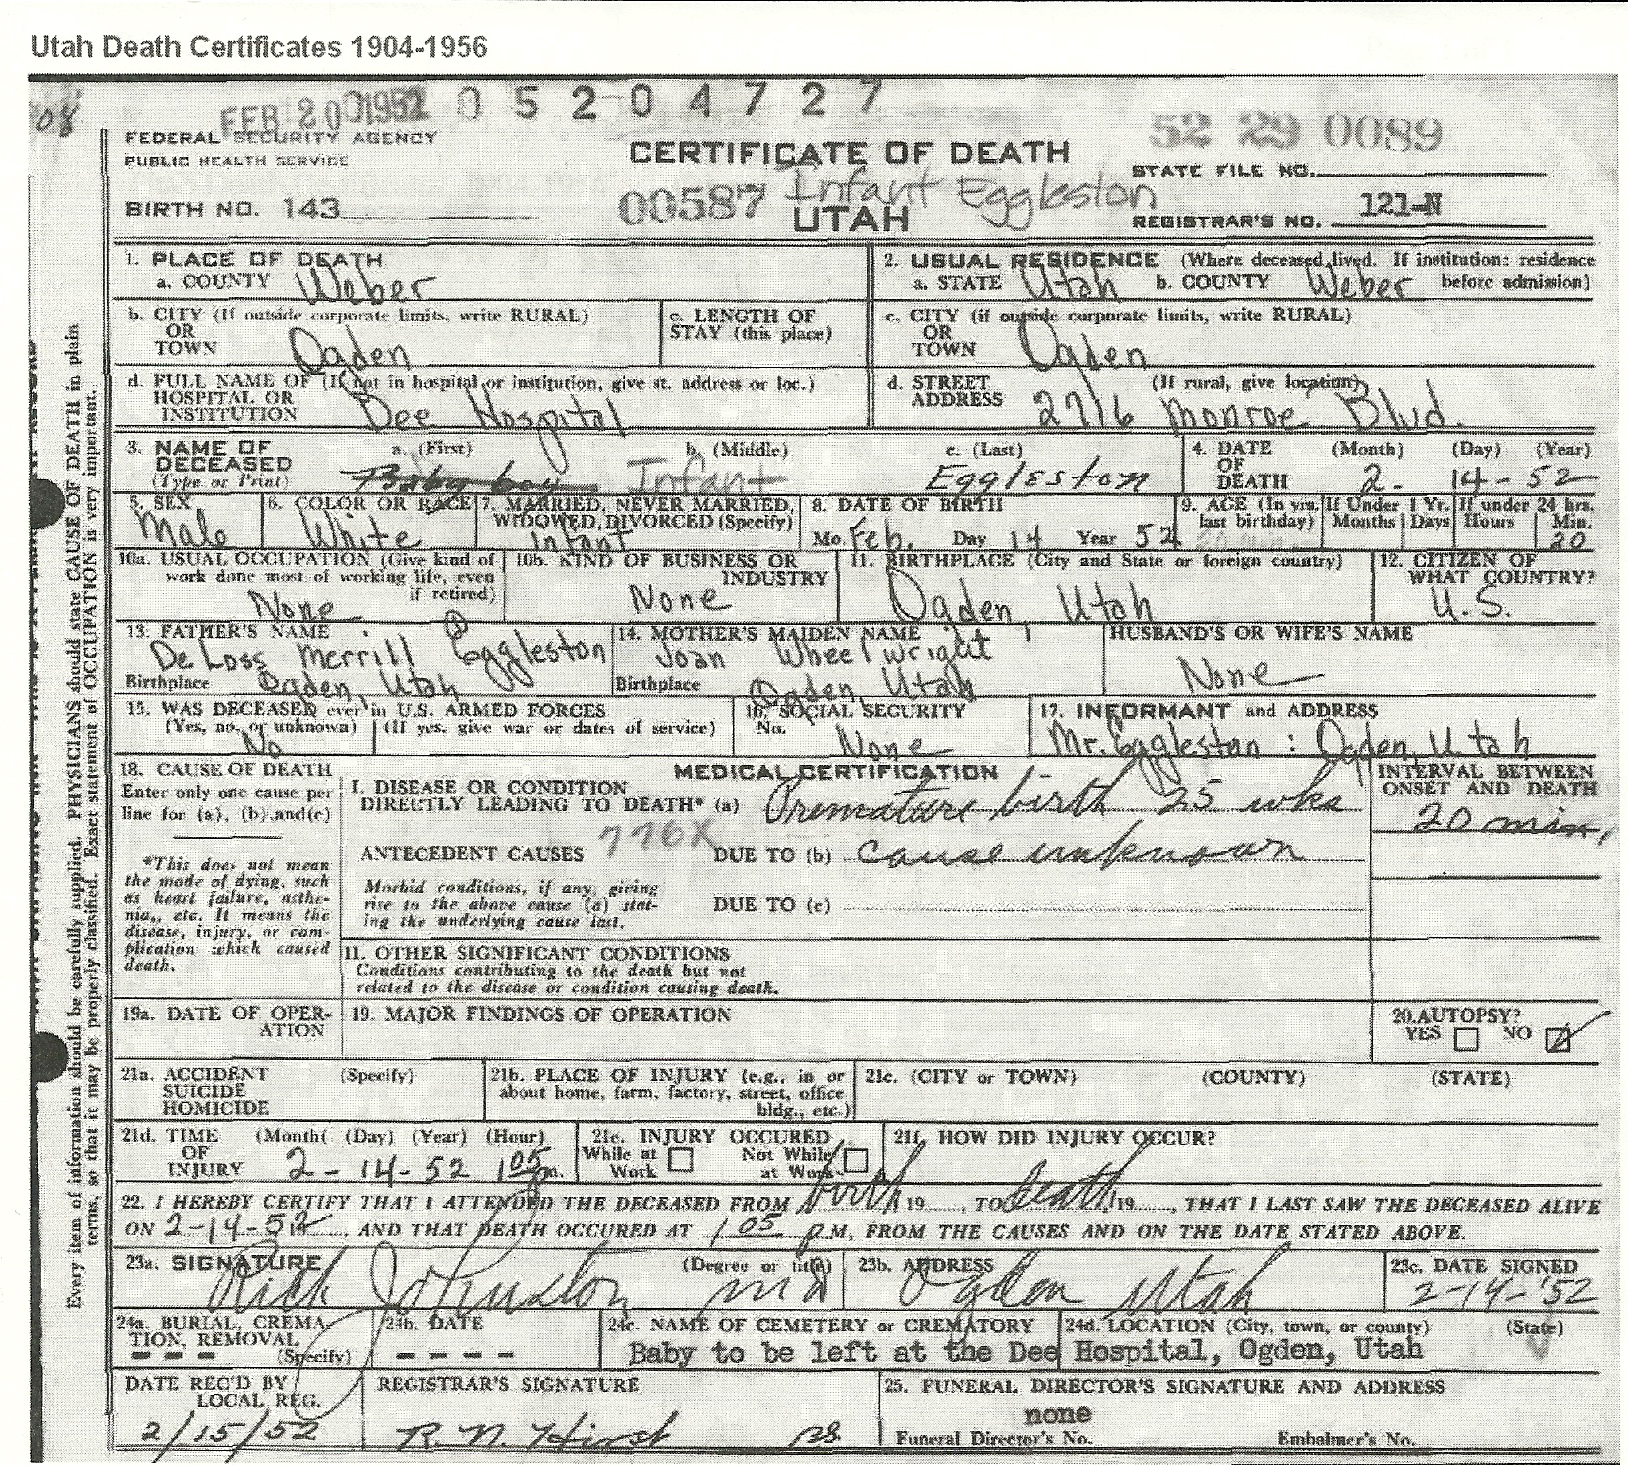 Utah Death Certificates 1904-1956
08
FEB 20 1952 0 5 2 0 4 7 2 7
52 29 0089
FEDERAL SECURITY AGENCY
PUBLIC HEALTH SERVICE
CERTIFICATE OF DEATH
STATE FILE NO.
BIRTH NO. 143
00587 Infant Eggleston
UTAH
REGISTRAR'S NO. 121-N
1. PLACE OF DEATH
a. COUNTY Weber
2. USUAL RESIDENCE (Where deceased lived. If institution: residence
a. STATE Utah b. COUNTY Weber before admission)
b. CITY (If outside corporate limits, write RURAL)
OR
TOWN Ogden
c. LENGTH OF
STAY (this place)
c. CITY (if outside corporate limits, write RURAL)
OR
TOWN Ogden
d. FULL NAME OF (If not in hospital or institution, give st. address or loc.)
HOSPITAL OR
INSTITUTION Dee Hospital
d. STREET (If rural, give location)
ADDRESS 2716 Monroe Blvd.
3. NAME OF a. (First) b. (Middle) c. (Last)
DECEASED
(Type or Print) Baby boy Infant Eggleston
4. DATE (Month) (Day) (Year)
OF
DEATH 2- 14-52
5. SEX
Male
6. COLOR OR RACE
White
7. MARRIED, NEVER MARRIED,
WIDOWED, DIVORCED (Specify)
Infant
8. DATE OF BIRTH
Mo. Feb. Day 14 Year 52
9. AGE (In yrs. If Under 1 Yr. If under 24 hrs.
last birthday) Months Days Hours Min.
20
10a. USUAL OCCUPATION (Give kind of
work done most of working life, even
if retired)
None
10b. KIND OF BUSINESS OR
INDUSTRY
None
11. BIRTHPLACE (City and State or foreign country)
Ogden, Utah
12. CITIZEN OF
WHAT COUNTRY?
U.S.
13. FATHER'S NAME
De Loss Merrill Eggleston
Birthplace Ogden, Utah
14. MOTHER'S MAIDEN NAME
Joan Wheelwright
Birthplace Ogden, Utah
HUSBAND'S OR WIFE'S NAME
None
15. WAS DECEASED ever in U.S. ARMED FORCES
(Yes, no, or unknown) (If yes, give war or dates of service)
No
16. SOCIAL SECURITY
No.
None
17. INFORMANT and ADDRESS
Mr. Eggleston : Ogden, Utah
18. CAUSE OF DEATH
Enter only one cause per
line for (a), (b), and (c)
*This does not mean
the mode of dying, such
as heart failure, asthe-
nia, etc. It means the
disease, injury, or com-
plication which caused
death.
MEDICAL CERTIFICATION
I. DISEASE OR CONDITION
DIRECTLY LEADING TO DEATH* (a) Premature birth 25 wks
776X
ANTECEDENT CAUSES DUE TO (b) cause unknown
Morbid conditions, if any, giving
rise to the above cause (a) stat-
ing the underlying cause last.
DUE TO (c)
INTERVAL BETWEEN
ONSET AND DEATH
20 min.
II. OTHER SIGNIFICANT CONDITIONS
Conditions contributing to the death but not
related to the disease or condition causing death.
19a. DATE OF OPER-
ATION
19. MAJOR FINDINGS OF OPERATION
20. AUTOPSY?
YES NO
21a. ACCIDENT (Specify)
SUICIDE
HOMICIDE
21b. PLACE OF INJURY (e.g., in or
about home, farm, factory, street, office
bldg., etc.)
21c. (CITY or TOWN) (COUNTY) (STATE)
21d. TIME (Month( (Day) (Year) (Hour)
OF
INJURY 2-14-52 1 05 m.
21e. INJURY OCCURED
While at Not While
Work at Work
21f. HOW DID INJURY OCCUR?
22. I HEREBY CERTIFY THAT I ATTENDED THE DECEASED FROM birth, 19, TO death, 19, THAT I LAST SAW THE DECEASED ALIVE
ON 2-14-52, AND THAT DEATH OCCURED AT 1 05 P M, FROM THE CAUSES AND ON THE DATE STATED ABOVE.
23a. SIGNATURE (Degree or title)
Rich Johnston MD
23b. ADDRESS
Ogden Utah
23c. DATE SIGNED
2-14-'52
24a. BURIAL, CREMA-
TION, REMOVAL
(Specify)
- - -
24b. DATE
- - - -
24c. NAME OF CEMETERY or CREMATORY 24d. LOCATION (City, town, or county) (State)
Baby to be left at the Dee Hospital, Ogden, Utah
DATE REC'D BY
LOCAL REG.
2/15/52
REGISTRAR'S SIGNATURE
R. N. Hirst
25. FUNERAL DIRECTOR'S SIGNATURE AND ADDRESS
none
Funeral Director's No. Embalmer's No.
Every item of information should be carefully supplied. PHYSICIANS should state CAUSE OF DEATH in plain
terms, so that it may be properly classified. Exact statement of OCCUPATION is very important.